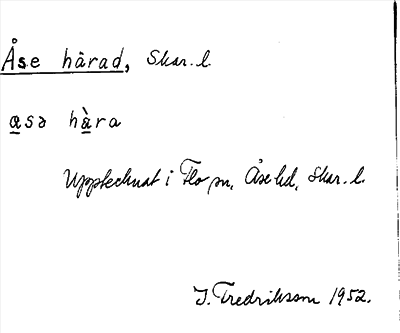 Åse härad, Skar. l
a̲sə hà̲ra
Upptecknat i Flo sn, Åse hd, Skar. l.
I. Fredriksson 1952.